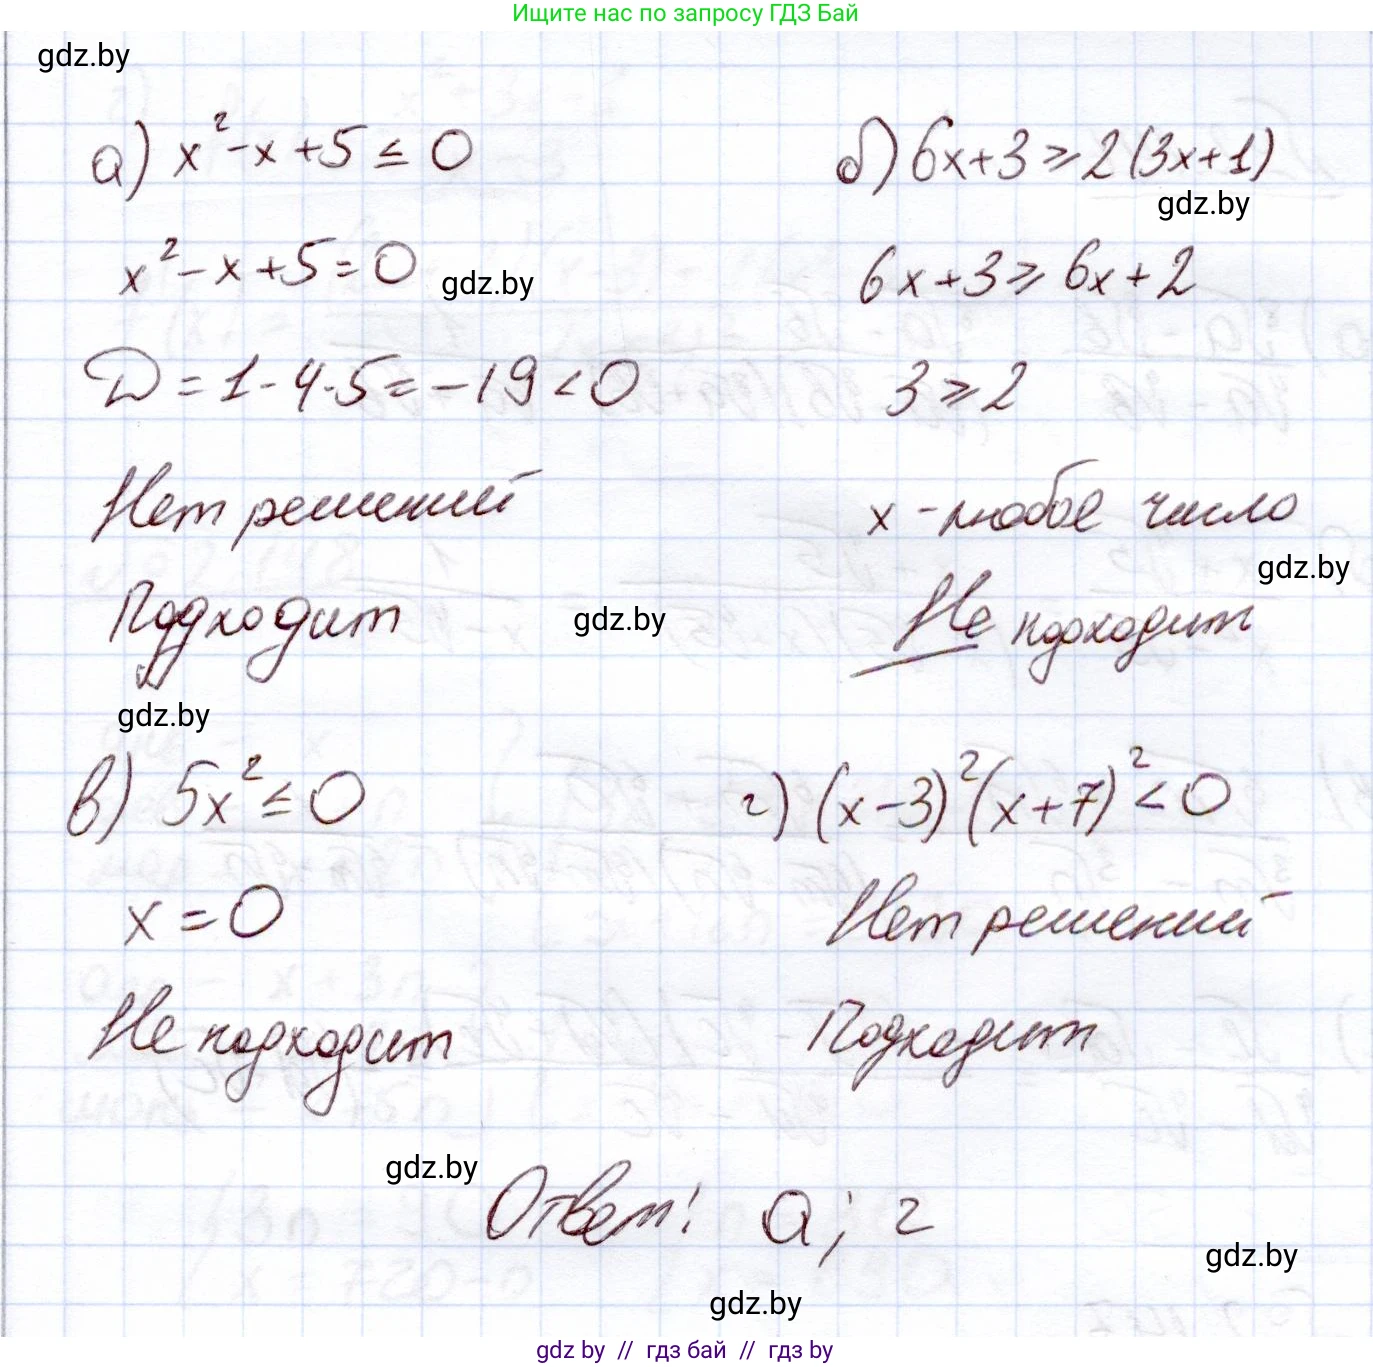 Ищите нас по запросу ГДЗ Бай
gdz.by
а) x² - x + 5 ≤ 0
x² - x + 5 = 0
gdz.by
D = 1 - 4 · 5 = -19 < 0
Нет решений
Подходит
gdz.by
б) 6x + 3 ≥ 2(3x + 1)
gdz.by
6x + 3 ≥ 6x + 2
3 ≥ 2
x - любое число
gdz.by
Не подходит
gdz.by
в) 5x² ≤ 0
x = 0
Не подходит
г) (x - 3)² (x + 7)² < 0
Нет решений
Подходит
gdz.by
Ответ: а; г
gdz.by
gdz.by
gdz by // гдз бай // гдз by